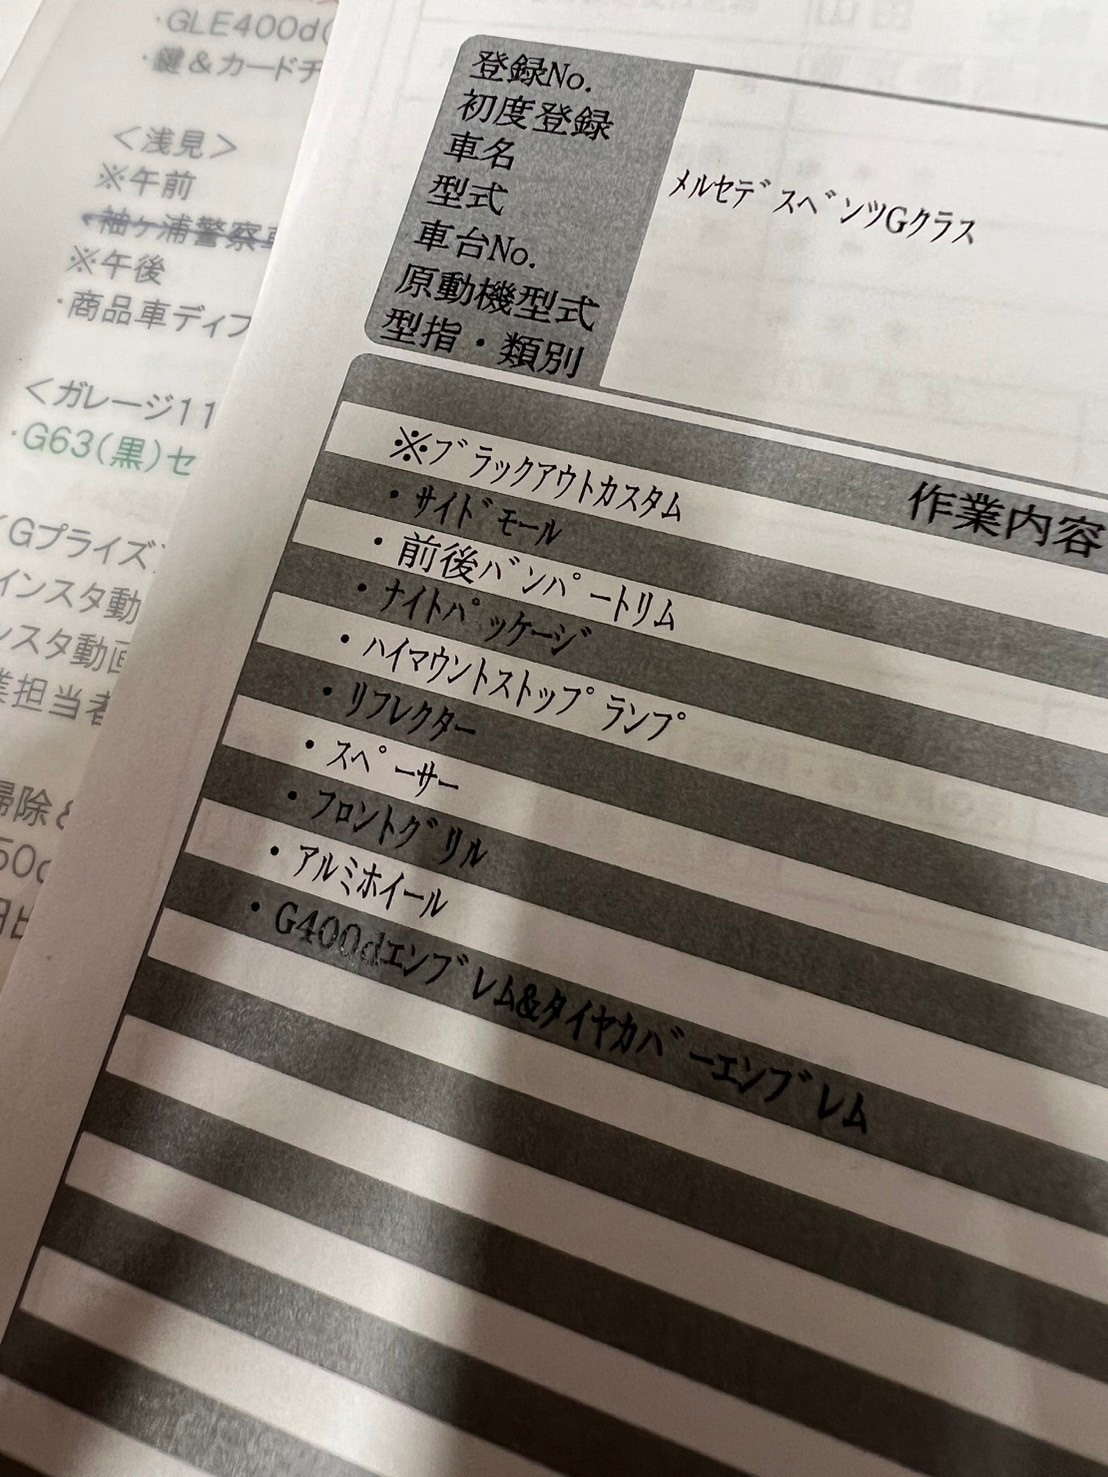 ・GLE400d(
・鍵＆カードチ
＜浅見＞
※午前
・袖ヶ浦警察
※午後
・商品車ディフ
＜ガレージ11
・G63(黒)セ
Gプライズ
インスタ動
ンスタ動画
業担当者
掃除&
登録No.
初度登録
車名
メルセデスベンツGクラス
型式
車台No.
原動機型式
型指・類別
作業内容
※ブラックアウトカスタム
・サイドモール
・前後バンパートリム
・ナイトパッケージ
・ハイマウントストップランプ
・リフレクター
・スペーサー
・フロントグリル
・アルミホイール
・G400dエンブレム&タイヤカバーエンブレム